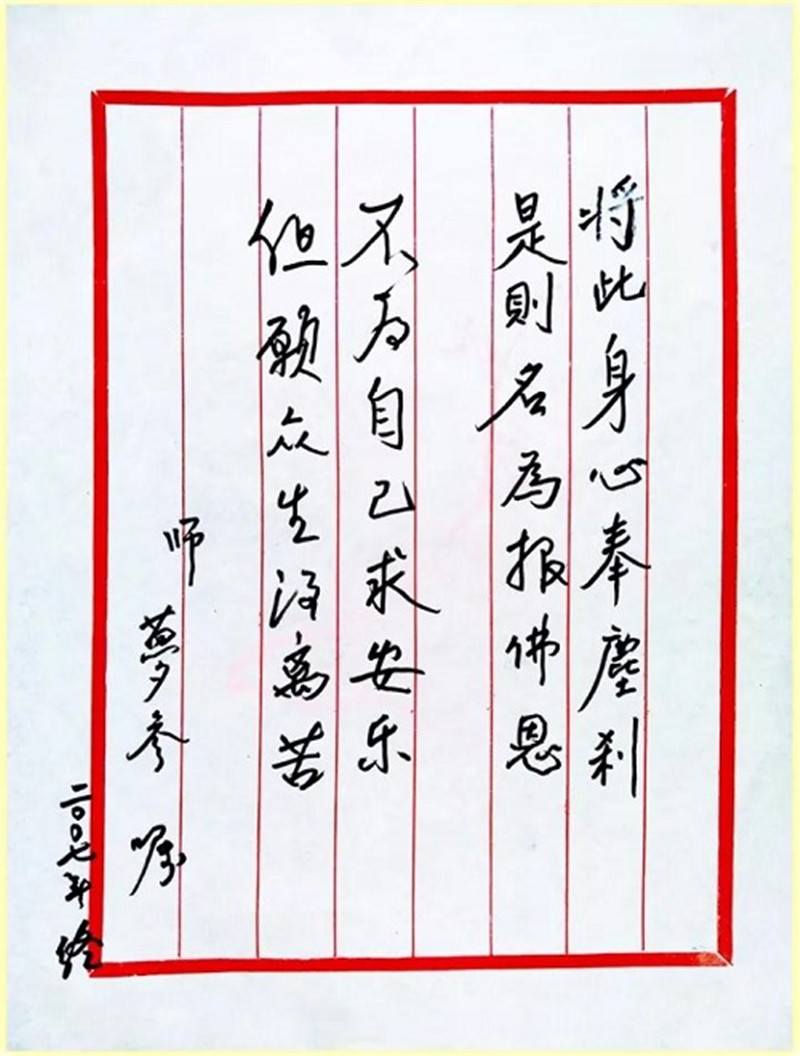 将此身心奉塵刹
是則名為报佛恩
不为自己求安乐
但願众生得离苦
师
夢参 嘱
二〇〇七年 终